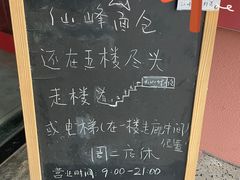 仙峰面包
还在五楼尽头
走楼道
或电梯(在一楼走廊中间
位置)
周二店休
营业时间:9:00-21:00